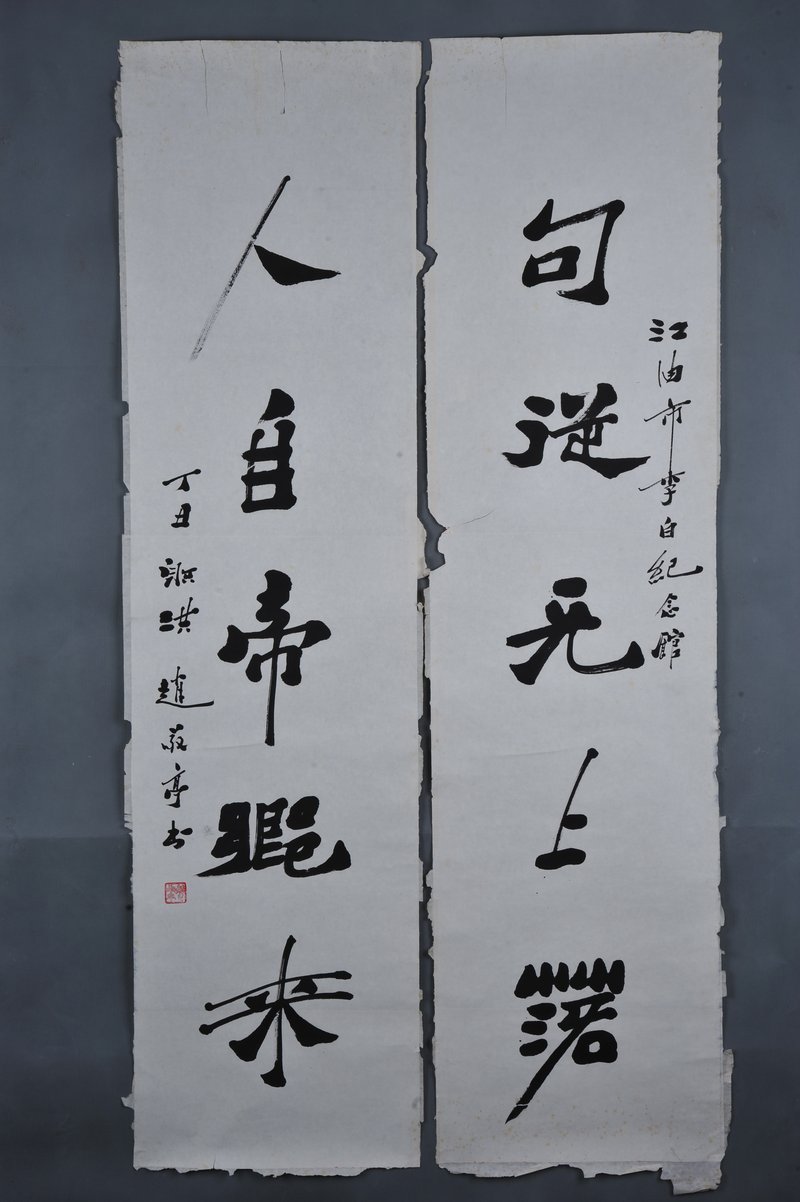 江油市李白紀念館
句從天上落
人自帝鄉來
丁丑 淇 趙敬亭书